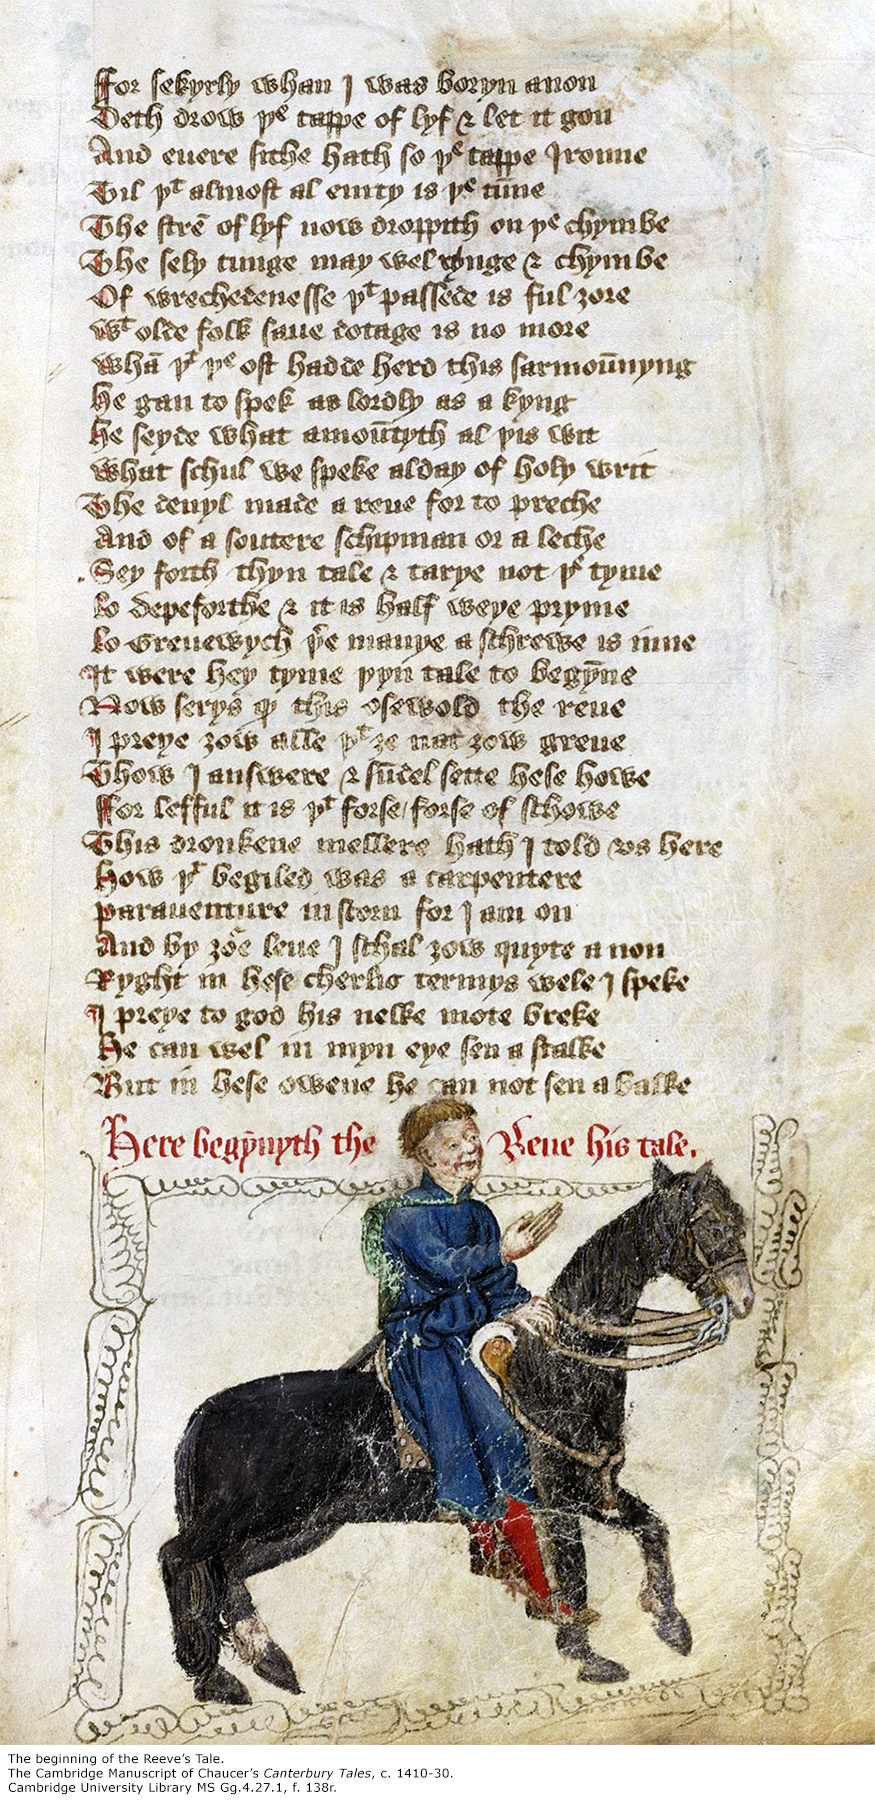 For sekyrly whan I was boryn anon
Deth drow þe tappe of lyf & let it gon
And euere sithe hath so þe tappe I ronne
Til þt almost al emty is þe tūne
The strē of lyf now droppith on þe chymbe
The sely tunge may wel rynge & chymbe
Of wrechedenesse þt passede is ful ȝore
Wt olde folk saue dotage is no more
Whā þt þe ost hadde herd this sarmoūnyng
He gan to spek as lordly as a kyng
He seyde what amoūtyth al þis wit
What schul we speke alday of holy writ
The deuyl made a reue for to preche
And of a soutere schipman or a leche
Sey forth thyn tale & tarye not þe tyme
Lo depeforthe & it is half weye pryme
Lo Grenewych þe manye a schrewe is inne
It were hey tyme þyn tale to begȳne
Now serys qþ this Osewold the reue
I preye ȝow alle þt ȝe nat ȝow greue
Thow I answere & sūdel sette hese howe
For lefful it is þt forse forse of schowe
This dronkene mellere hath I told vs here
How þt begiled was a carpentere
Parauenture in scorn for I am on
And by ȝoure leue I schal ȝow quyte a non
Ryght in hese cherlis termys wele I speke
I preye to god his nekke mote breke
He can wel in myn eye sen a stalke
But in hese owene he can not sen a balke
Here begȳnyth the Reue his tale.
The beginning of the Reeve’s Tale.
The Cambridge Manuscript of Chaucer’s Canterbury Tales, c. 1410-30.
Cambridge University Library MS Gg.4.27.1, f. 138r.